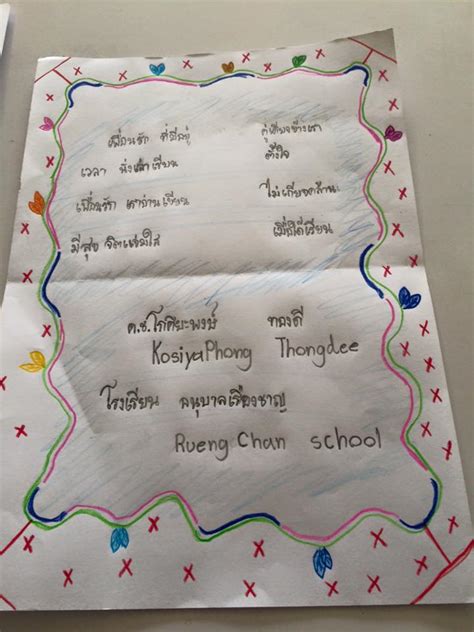 เพื่อนรัก ที่มีอยู่ คู่เคียงข้างเรา
เวลา นั่งเล่าเรียน ตั้งใจ
เพื่อนรัก เราอ่านเขียน ไม่เกียจคร้าน
มีสุข จิตแจ่มใส เมื่อได้เรียน
ด.ช.โกศิยะพงษ์ ทองดี
KosiyaPhong Thongdee
โรงเรียน อนุบาลเรืองชาญ
Rueng Chan school